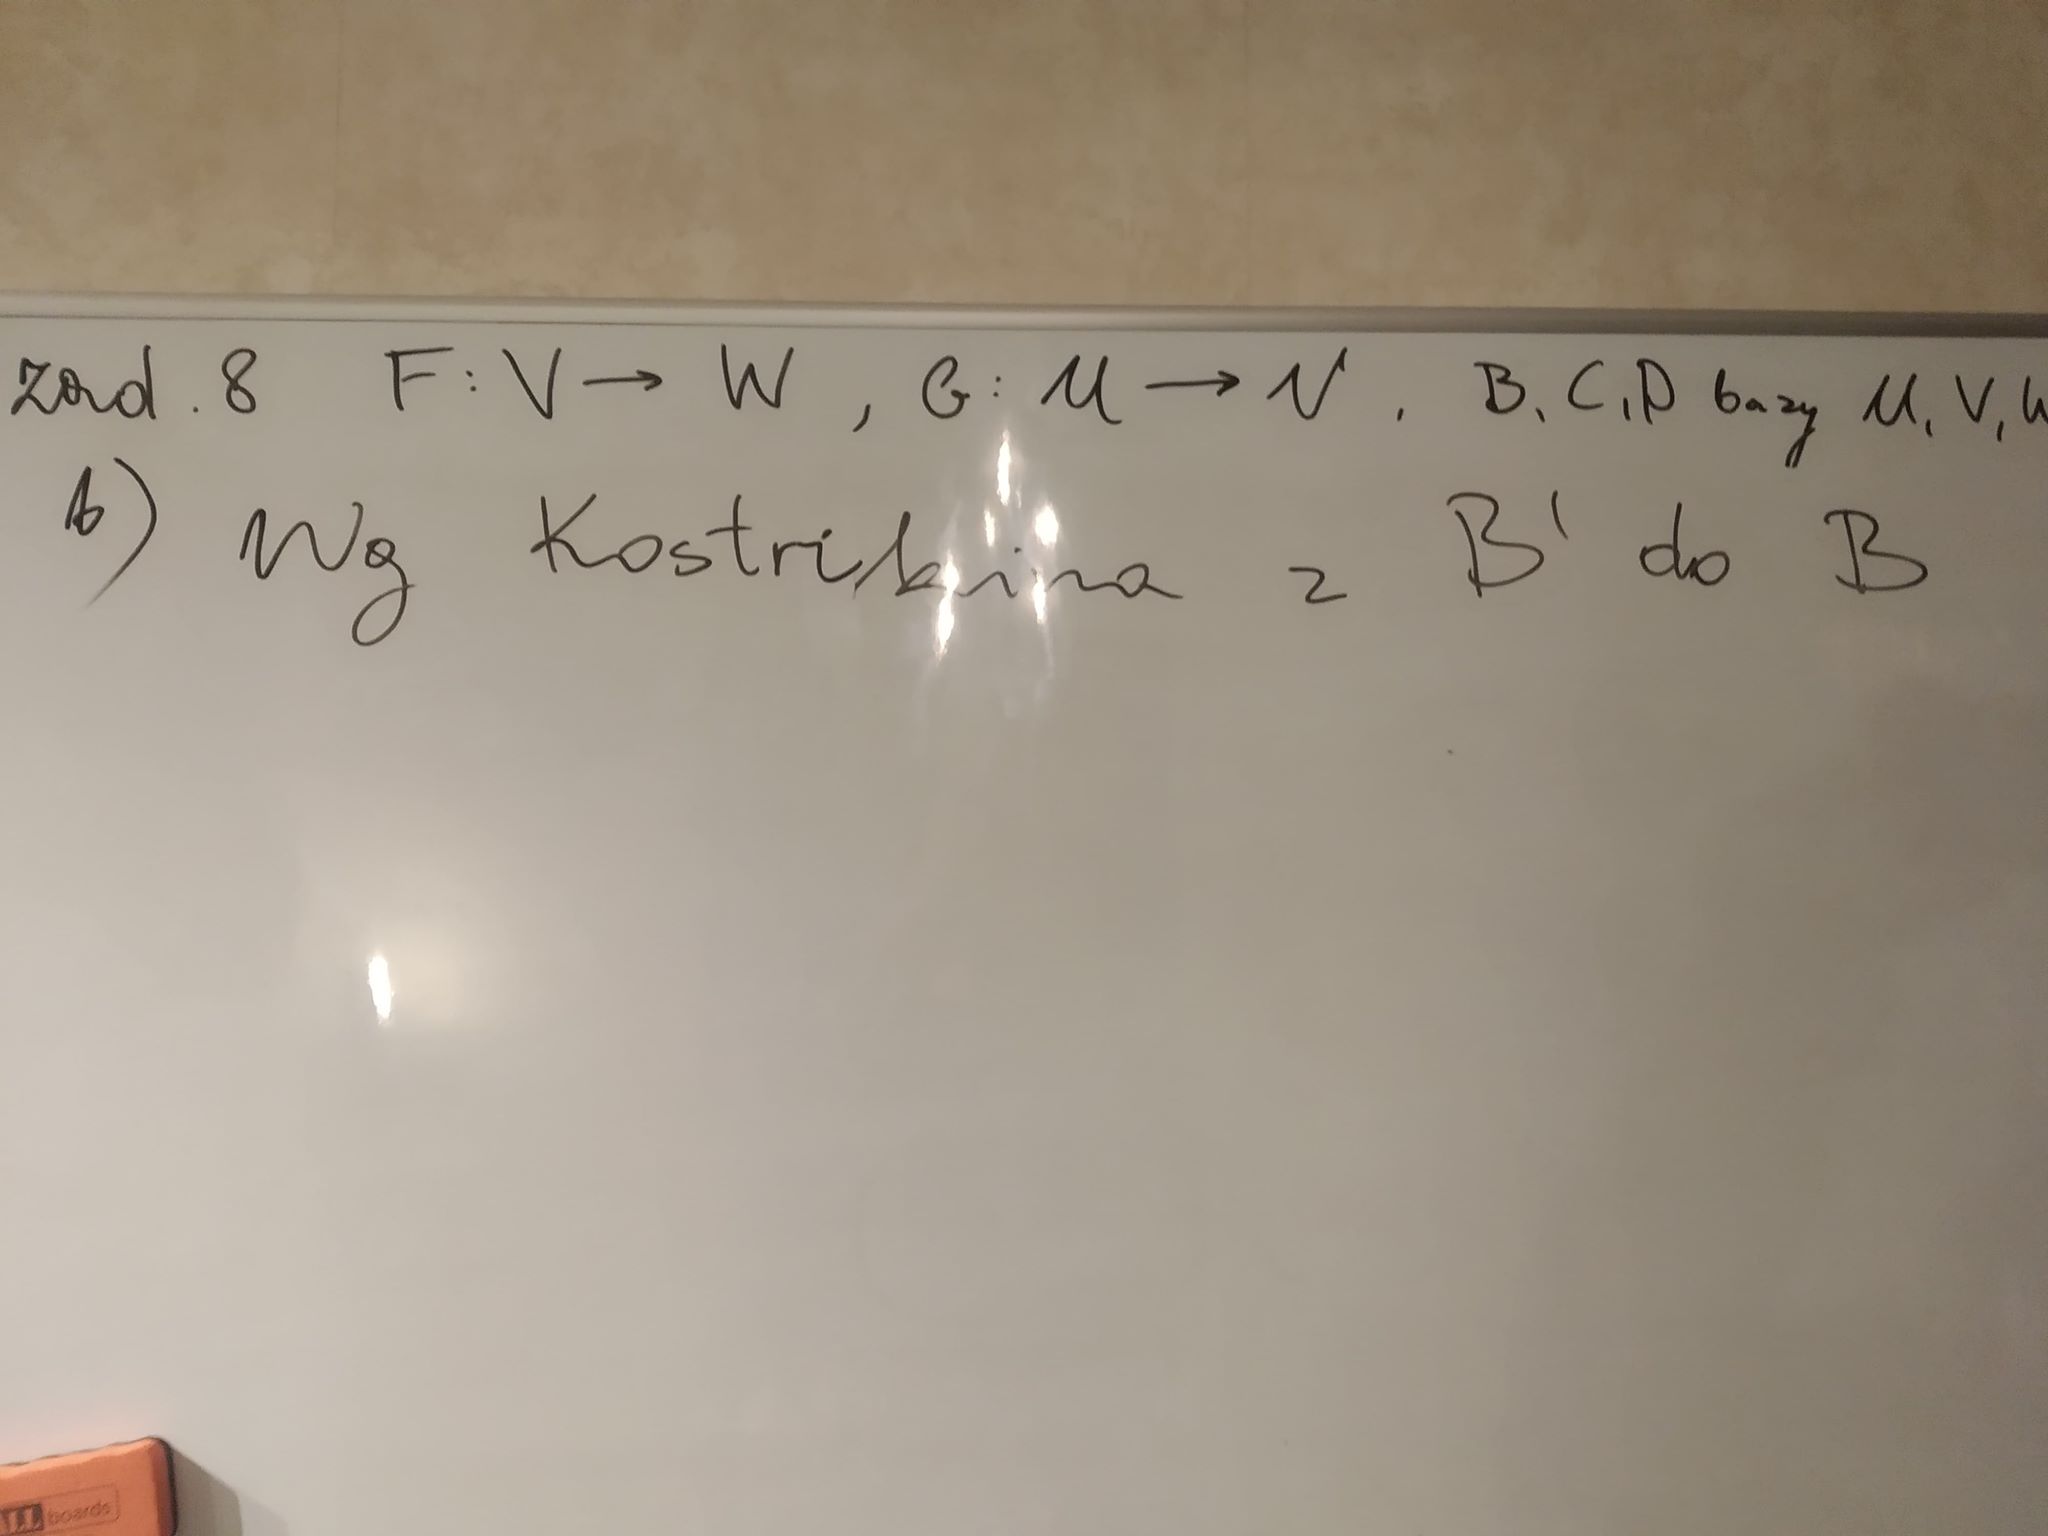 zad. 8 F: V → W, G: U → V. B, C, D bazy U, V, W
b) Wg Kostrikina z B' do B
ALL boards